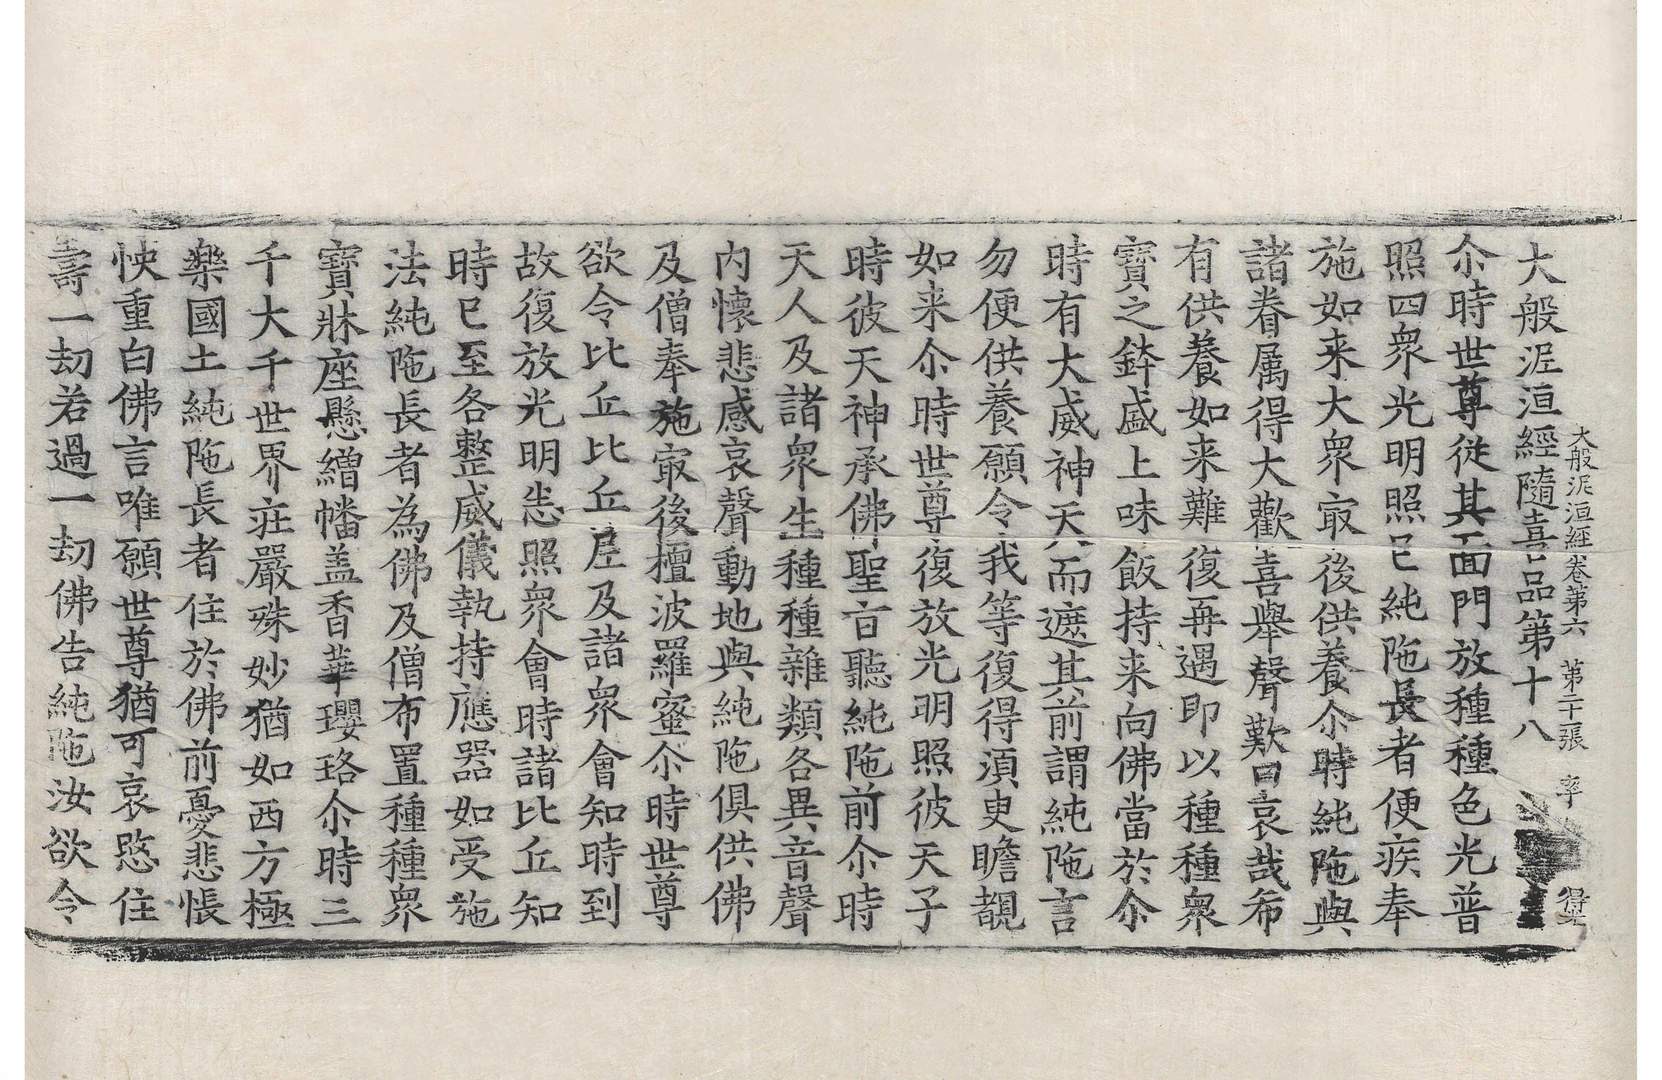 大般泥洹経卷第六 第二十張 率
大般泥洹經隨喜品第十八
尒時世尊從其面門放種種色光普
照四衆光明照已純陁長者便疾奉
施如来大衆㝡後供養尒時純陁與
諸眷属得大歡喜舉聲歎曰哀哉希
有供養如来難復再遇即以種種衆
寶之鉢盛上味飯持来向佛當於尒
時有大威神天人而遮其前謂純陁言
勿便供養願令我等復得須臾瞻覩
如来尒時世尊復放光明照彼天子
時彼天神承佛聖旨聽純陁前尒時
天人及諸衆生種種雜類各異音聲
内懷悲感哀聲動地與純陁俱供佛
及僧奉施㝡後檀波羅蜜尒時世尊
欲令比丘比丘尼及諸衆會知時到
故復放光明悉照衆會時諸比丘知
時已至各整威儀執持應器如受施
法純陁長者為佛及僧布置種種衆
寶牀座懸繒幡盖香華瓔珞尒時三
千大千世界荘嚴殊妙猶如西方極
樂國土純陁長者住於佛前憂悲悵
怏重白佛言唯願世尊猶可哀愍住
壽一劫若過一劫佛告純陁汝欲令